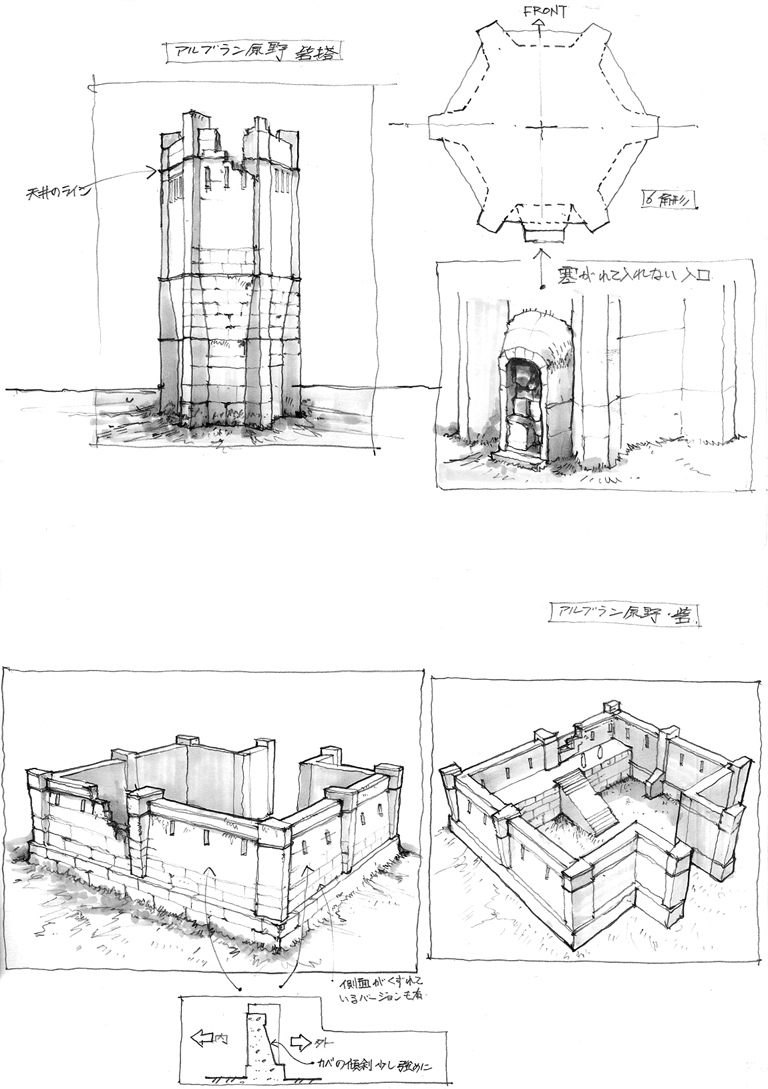 FRONT
アルブラン原野 砦塔
天井のライン
6角形
塞がれて入れない入口
アルブラン原野・砦
側面がくずれて
いるバージョンも有
内
外
カベの傾斜少し強めに